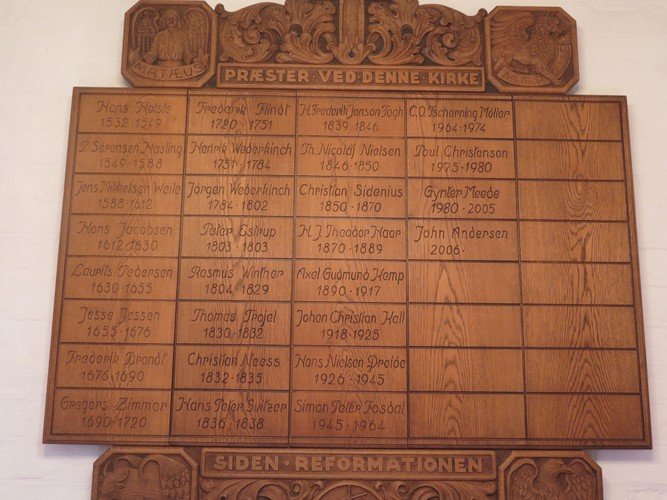 MATÆUS
PRÆSTER · VED · DENNE · KIRKE
Hans Holste
1532 · 1549
P Sørensen Hasling
1549 · 1588
Jens Mikkelsen Weile
1588 1612
Hans Jacobsen
1612 · 1630
Laurits Pedersen
1630 · 1655
Jesse Jessen
1655 · 1676
Frederik Brandt
1676 · 1690
Gregers Zimmer
1690 · 1720
Frederik
1720 · 1751
Henrik Wederkinch
1751 · 1784
Jörgen Wederkinch
1784 · 1802
Peter Estrup
1803 · 1803
Rasmus Winther
1804 · 1829
Thomas Trojel
1830 · 1832
Christian Neess
1832 · 1835
Hans Peter Svitzer
1836 · 1838
H. Frederik Janson Fogh
1839 · 1846
Th. Nicolaj Nielsen
1846 · 1850
Christian Sidenius
1850 · 1870
H. J. Theodor Haar
1870 · 1889
Axel Gudmund Kemp
1890 · 1917
Johan Christian Holt
1918 · 1925
Hans Nielsen Drebe
1926 · 1945
Simon Peter Fosdal
1945 · 1964
C.O. Tscherning Möller
1964 · 1974
Poul Christensen
1975 · 1980
Gynter Meede
1980 · 2005
John Andersen
2006 ·
SIDEN · REFORMATIONEN